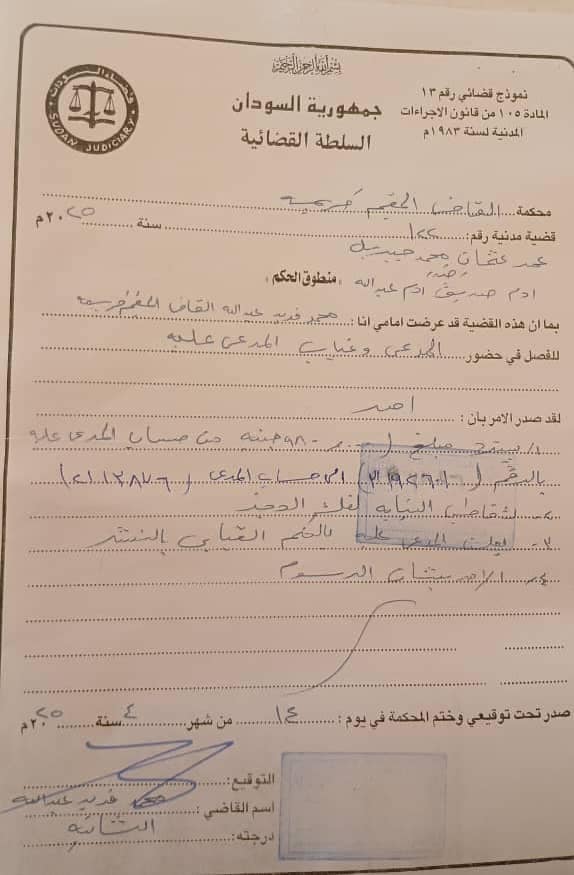 بسم الله الرحمن الرحيم
نموذج قضائي رقم ١٣
المادة ١٠٥ من قانون الاجراءات
المدنية لسنة ١٩٨٣م
جمهورية السودان
السلطة القضائية
قضاء السودان
SUDAN JUDICIARY
محكمة القاضي المقيم كريمه
قضية مدنية رقم: ١٢٢ سنة ٢٠٢٥م
محمد عثمان محمد جبريل
ضد
ادم صديق ادم عبدالله
« منطوق الحكم »
بما ان هذه القضية قد عرضت امامي انا: محمد فريد عبدالله القاضي المقيم كريمه
للفصل في حضور المدعي وغياب المدعى عليه
لقد صدر الامر بان: امر
١/ يسترد مبلغ جنيه من حساب المدعى عليه
بالرقم الى حساب المدعي (٢١١٢٨٧٦)
٢- تخاطب النيابه لفك الحجز
٣- يعلن المدعى عليه بالحكم الغيابي بالنشر
٤- لا امر بشان الرسوم
صدر تحت توقيعي وختم المحكمة في يوم: ١٤ من شهر ٤ سنة ٢٠٢٥م
التوقيع:
اسم القاضي: محمد فريد عبدالله
درجته: الثانية